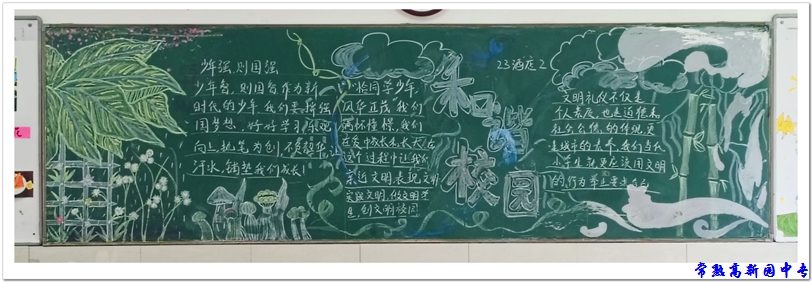 少年强、则国强
少年智、则国智作为新
时代的少年我们要
国梦想，好好学习
向上执笔为剑，不负韶华
汗水，铺垫我们成长！
恰同学少年，
风华正茂"我们
满怀憧憬，我们
在
个过程中让我们
文明表现文明
实践文明，做文明学
生，创文明校园
和谐
校园
23酒店2
文明礼仪不仅是
个人素质，也是道德和
社会公德的体现更
是城市的 我们当代
小学生就更应该用文明
的行为举止
常熟高新园中专